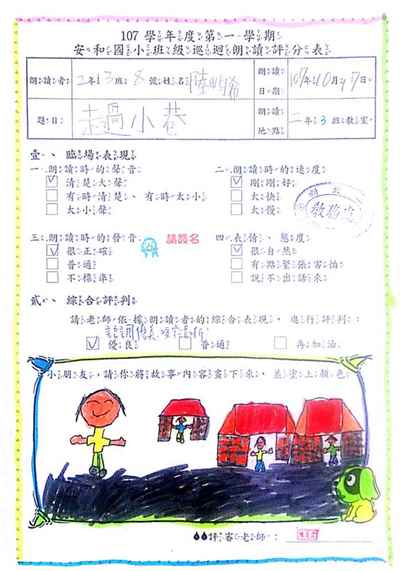 107 學年度第一學期
安和國小班級巡迴朗讀評分表
朗讀者 二年13班8號姓名 朗讀日期 107年10月17日
題目 走過小巷 朗讀地點 二年3班教室
壹、臨場表現
一、朗讀時的聲音 二、朗讀時的速度
清楚大聲 剛剛好
有時清楚、有時太小 太快
太小聲 太慢
請簽名
三、朗讀時的發音 四、表情、態度
很正確 很自然
普通 有點緊張害怕
不標準 說不出話來
貳、綜合評判
請老師依據朗讀者的綜合表現，進行評判：
優良 普通 再加油
小朋友，請你將故事內容畫下來，並塗上顏色。
評審老師：